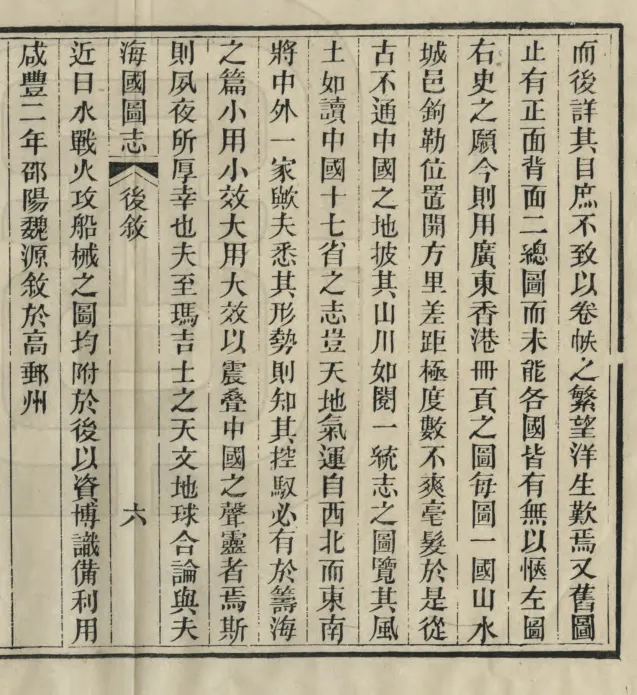 而後詳其目庶不致以卷帙之繁望洋生歎焉又舊圖
止有正面背面二總圖而未能各國皆有無以愜左圖
右史之願今則用廣東香港冊頁之圖每圖一國山水
城邑鉤勒位置開方里差距極度數不爽毫髮於是從
古不通中國之地披其山川如閱一統志之圖覽其風
土如讀中國十七省之志豈天地氣運自西北而東南
將中外一家歟夫悉其形勢則知其控馭必有於籌海
之篇小用小效大用大效以震疊中國之聲靈者焉斯
則夙夜所厚幸也夫至瑪吉士之天文地球合論與夫
海國圖志 後敘 六
近日水戰火攻船械之圖均附於後以資博識備利用
咸豐二年邵陽魏源敘於高郵州